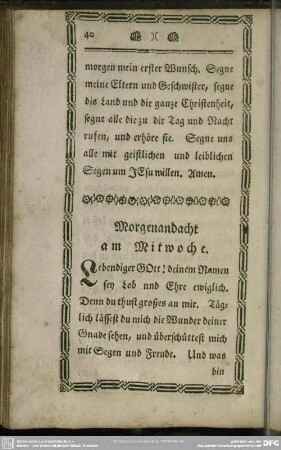 40
morgen mein erster Wunsch. Segne
meine Eltern und Geschwister, segne
dis Land und die ganze Christenheit,
segne alle die zu dir Tag und Nacht
rufen, und erhöre sie. Segne uns
alle mit geistlichen und leiblichen
Segen um JEsu willen. Amen.
Morgenandacht
am Mitwoche.
Lebendiger GOtt! deinem Namen
sey Lob und Ehre ewiglich.
Denn du thust großes an mir. Täg-
lich lässest du mich die Wunder deiner
Gnade sehen, und überschüttest mich
mit Segen und Freude. Und was
bin
DFG